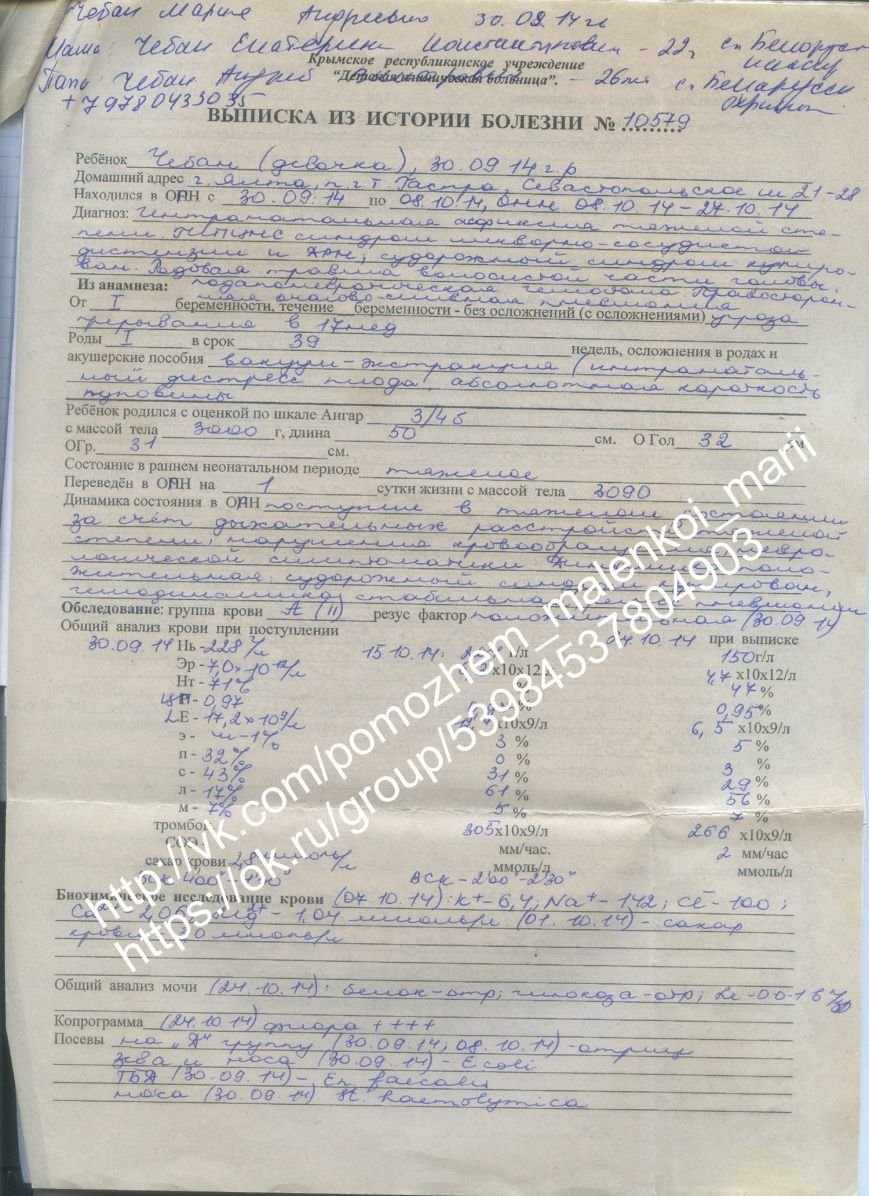 Чебан Мария Андреевна 30.09.14 г
Мама: Чебан Екатерина Константиновна - 22г с. Белорус
Крымское республиканское учреждение
Папа: Чебан Андрей "Детская клиническая больница". - 26
+79780433035
ВЫПИСКА ИЗ ИСТОРИИ БОЛЕЗНИ № 10579
Ребёнок Чебан (девочка), 30.09.14 г.р
Домашний адрес г. Ялта, п.г.т. Гаспра, Севастопольское ш. 21-28
Находился в ОАН с 30.09.14 по 08.10.14, ОННН 08.10.14-24.10.14
Диагноз: Интранатальная асфиксия тяжелой сте-
пени ГИПЦНС синдром ликворно-сосудистой
дистензии и судорожный синдром купиро-
ван. Родовая травма волосистой части головы:
Из анамнеза: подапоневротическая гематома. Правосторон-
няя очагово-сливная пневмония
От I беременности, течение беременности - без осложнений (с осложнениями) угроза
прерывания в 17 нед
Роды I в срок 39 недель, осложнения в родах и
акушерские пособия вакуум-экстракция (интранаталь-
ный дистресс плода, абсолютная короткость
пуповины
Ребёнок родился с оценкой по шкале Ангар 3/4 б
с массой тела 3000 г, длина 50 см. О Гол 32 см
ОГр. 31 см.
Состояние в раннем неонатальном периоде тяжелое
Переведён в ОАН на 1 сутки жизни с массой тела 3090
Динамика состояния в ОАН поступила в тяжелом состоянии
за счёт дыхательных расстройств тяжелой
степени, нарушения кровообращения, невро-
логической симптоматики. Динамика поло-
жительная: судорожный синдром купирован,
гемодинамика стабильная, пневмонии
Обследование: группа крови А (II) резус фактор положительная (30.09.14)
Общий анализ крови при поступлении
30.09.14 Нь - 228 г/л 15.10.14: г/л 24.10.14 при выписке 150 г/л
Эр - 7,0×10¹²/л х10х12/л 4,7 х10х12/л
Нт - 71% % 47 %
ЦП - 0,97 0,95 %
LЕ - 17,2×10⁹/л х10х9/л 6,5 х10х9/л
э - 1% 3 % 5 %
п - 32% 0 % 3 %
с - 43% 31 % 29 %
л - 17% 61 % 56 %
м - 7% 5 % 7 %
тромбоц 305х10х9/л 266 х10х9/л
СОЭ мм/час. 2 мм/час
сахар крови 2,8 ммоль/л ммоль/л ммоль/л
ВСК - 2'00"-2'30"
Биохимическое исследование крови (07.10.14): K⁺- 6,4; Na⁺ - 142; Cl - 100;
Ca 2,05; Mg - 1,04 ммоль/л. (01.10.14) - сахар
крови ммоль/л
Общий анализ мочи (24.10.14): белок-отр; глюкоза-отр; Le-0-0-1 в п/зр
Копрограмма (24.10.14) флора ++++
Посевы на „Д" группу (30.09.14; 08.10.14) -отриц
зева и носа (30.09.14) - E coli
ТБД (30.09.14) - En. faecalis
носа (30.09.14) St. haemolytica
http://vk.com/pomozhem_malenkoi_marii
https://ok.ru/group/53984537804903